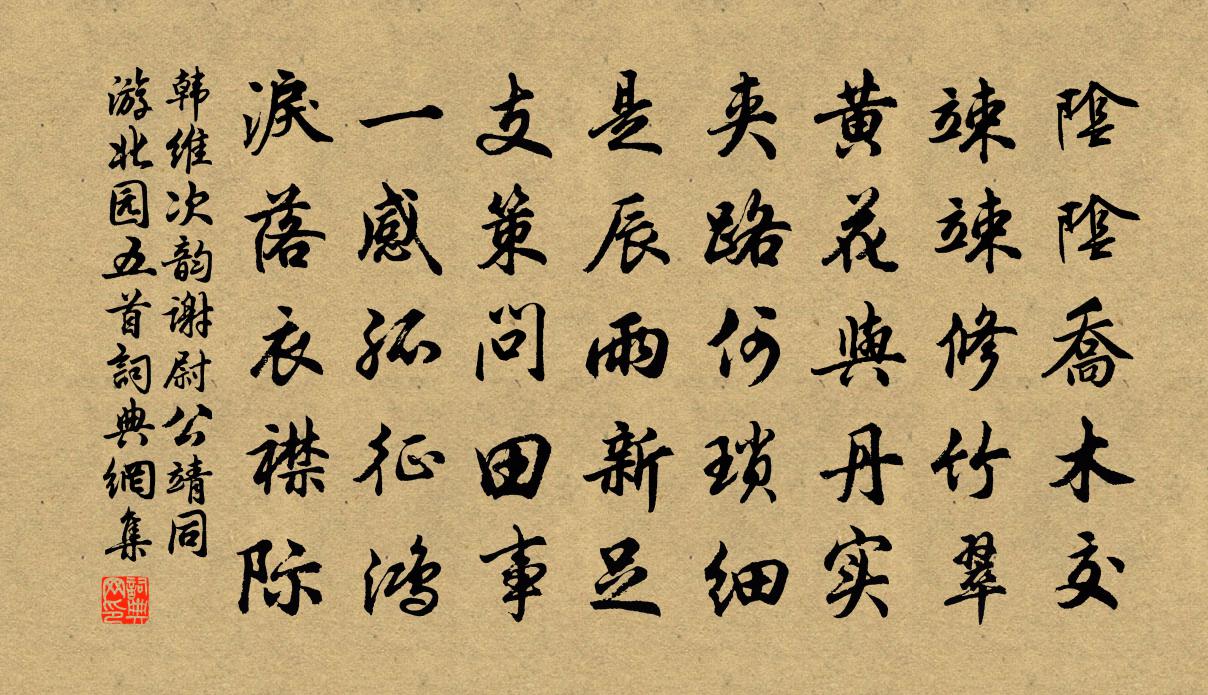 陰陰喬木交
竦竦修竹翠
黄花與丹实
夹路何琐细
是辰雨新足
支策问田事
一感孤征鸿
淚落衣襟际
韩维次韵谢尉公靖同
游北园五首詞典網集
詞典
网印